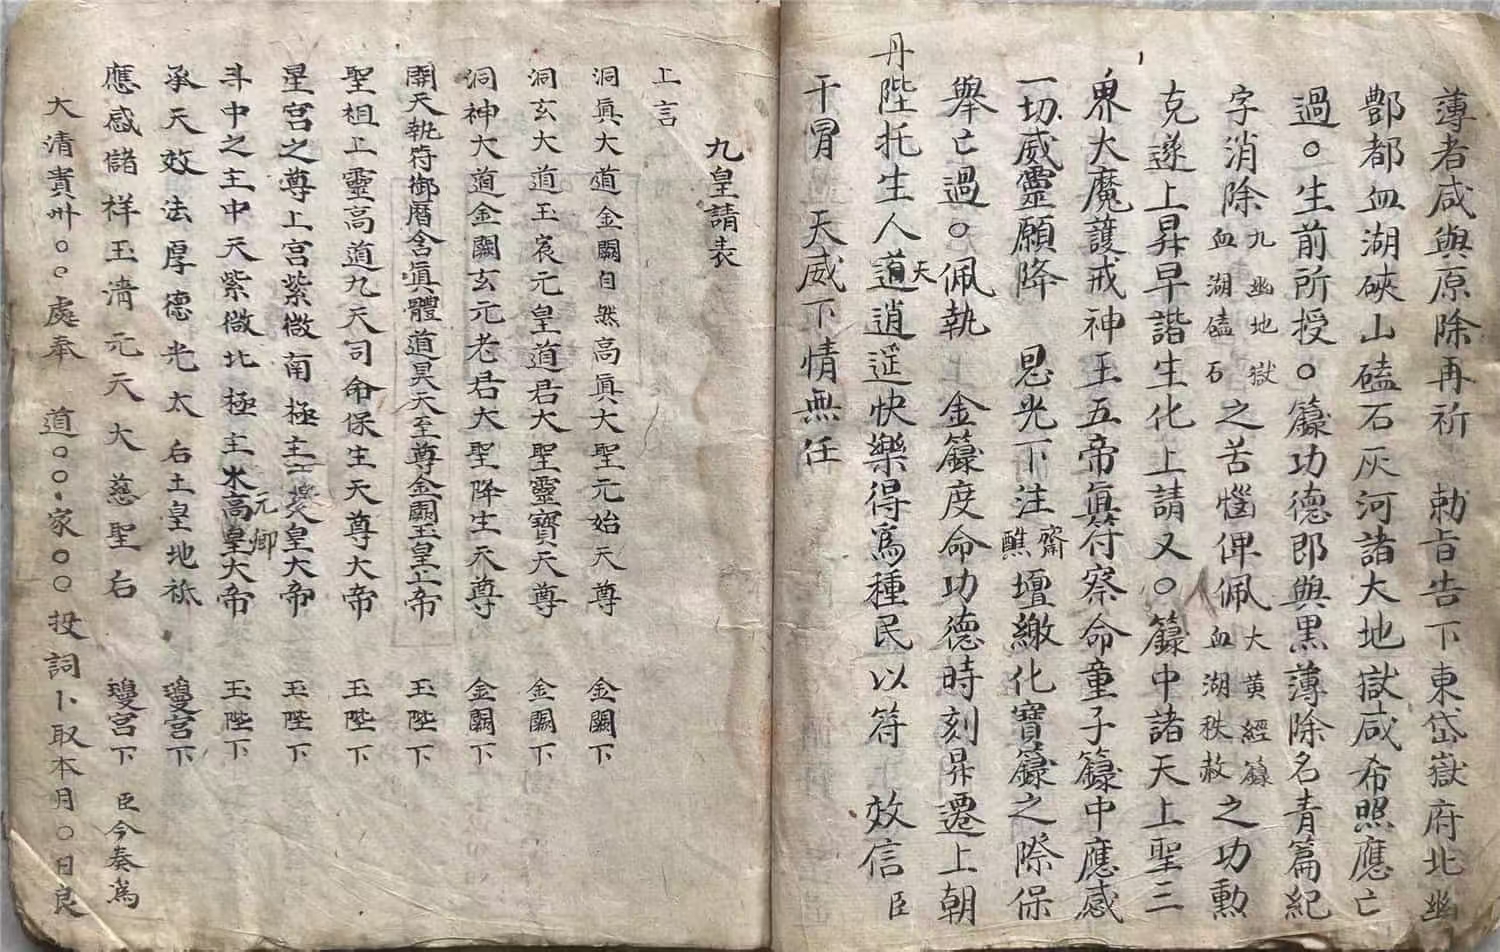 薄者咸與原除再祈　勅旨告下東岱嶽府北幽
酆都血湖硤山磕石灰河諸大地獄咸希照應亡
過○生前所授○籙功德即與黑薄除名青篇紀
字消除九幽地獄血湖磕石之苦惱俾佩大黃經籙血湖秩赦之功勳
克遂上昇早諧生化上請又○籙中諸天上聖三
界大魔護戒神王五帝眞符察命童子籙中應感
一切威靈願降　恩光下注齋醮壇繳化寶籙之際保
舉亡過○佩執　金籙度命功德時刻昇遷上朝
丹陛托生人道天逍遥快樂得爲種民以符　效信臣
干冐　天威下情無任
九皇請表
上言
洞眞大道金闕自然高眞大聖元始天尊　金闕下
洞玄大道玉宸元皇道君大聖靈寶天尊　金闕下
洞神大道金闕玄元老君大聖降生天尊　金闕下
開天執符御曆含眞體道昊天至尊金闕玉皇上帝　玉陛下
聖祖上靈高道九天司命保生天尊大帝　玉陛下
星宫之尊上宫紫微南極主皇大帝　玉陛下
斗中之主中天紫微北極主元卿高皇大帝　玉陛下
承天效法厚德光太后土皇地祇　瓊宫下
應感儲祥玉清元天大慈聖后　瓊宫下　臣今奏爲
大清貴州○○處奉　道○○家○○投詞卜取本月○日良